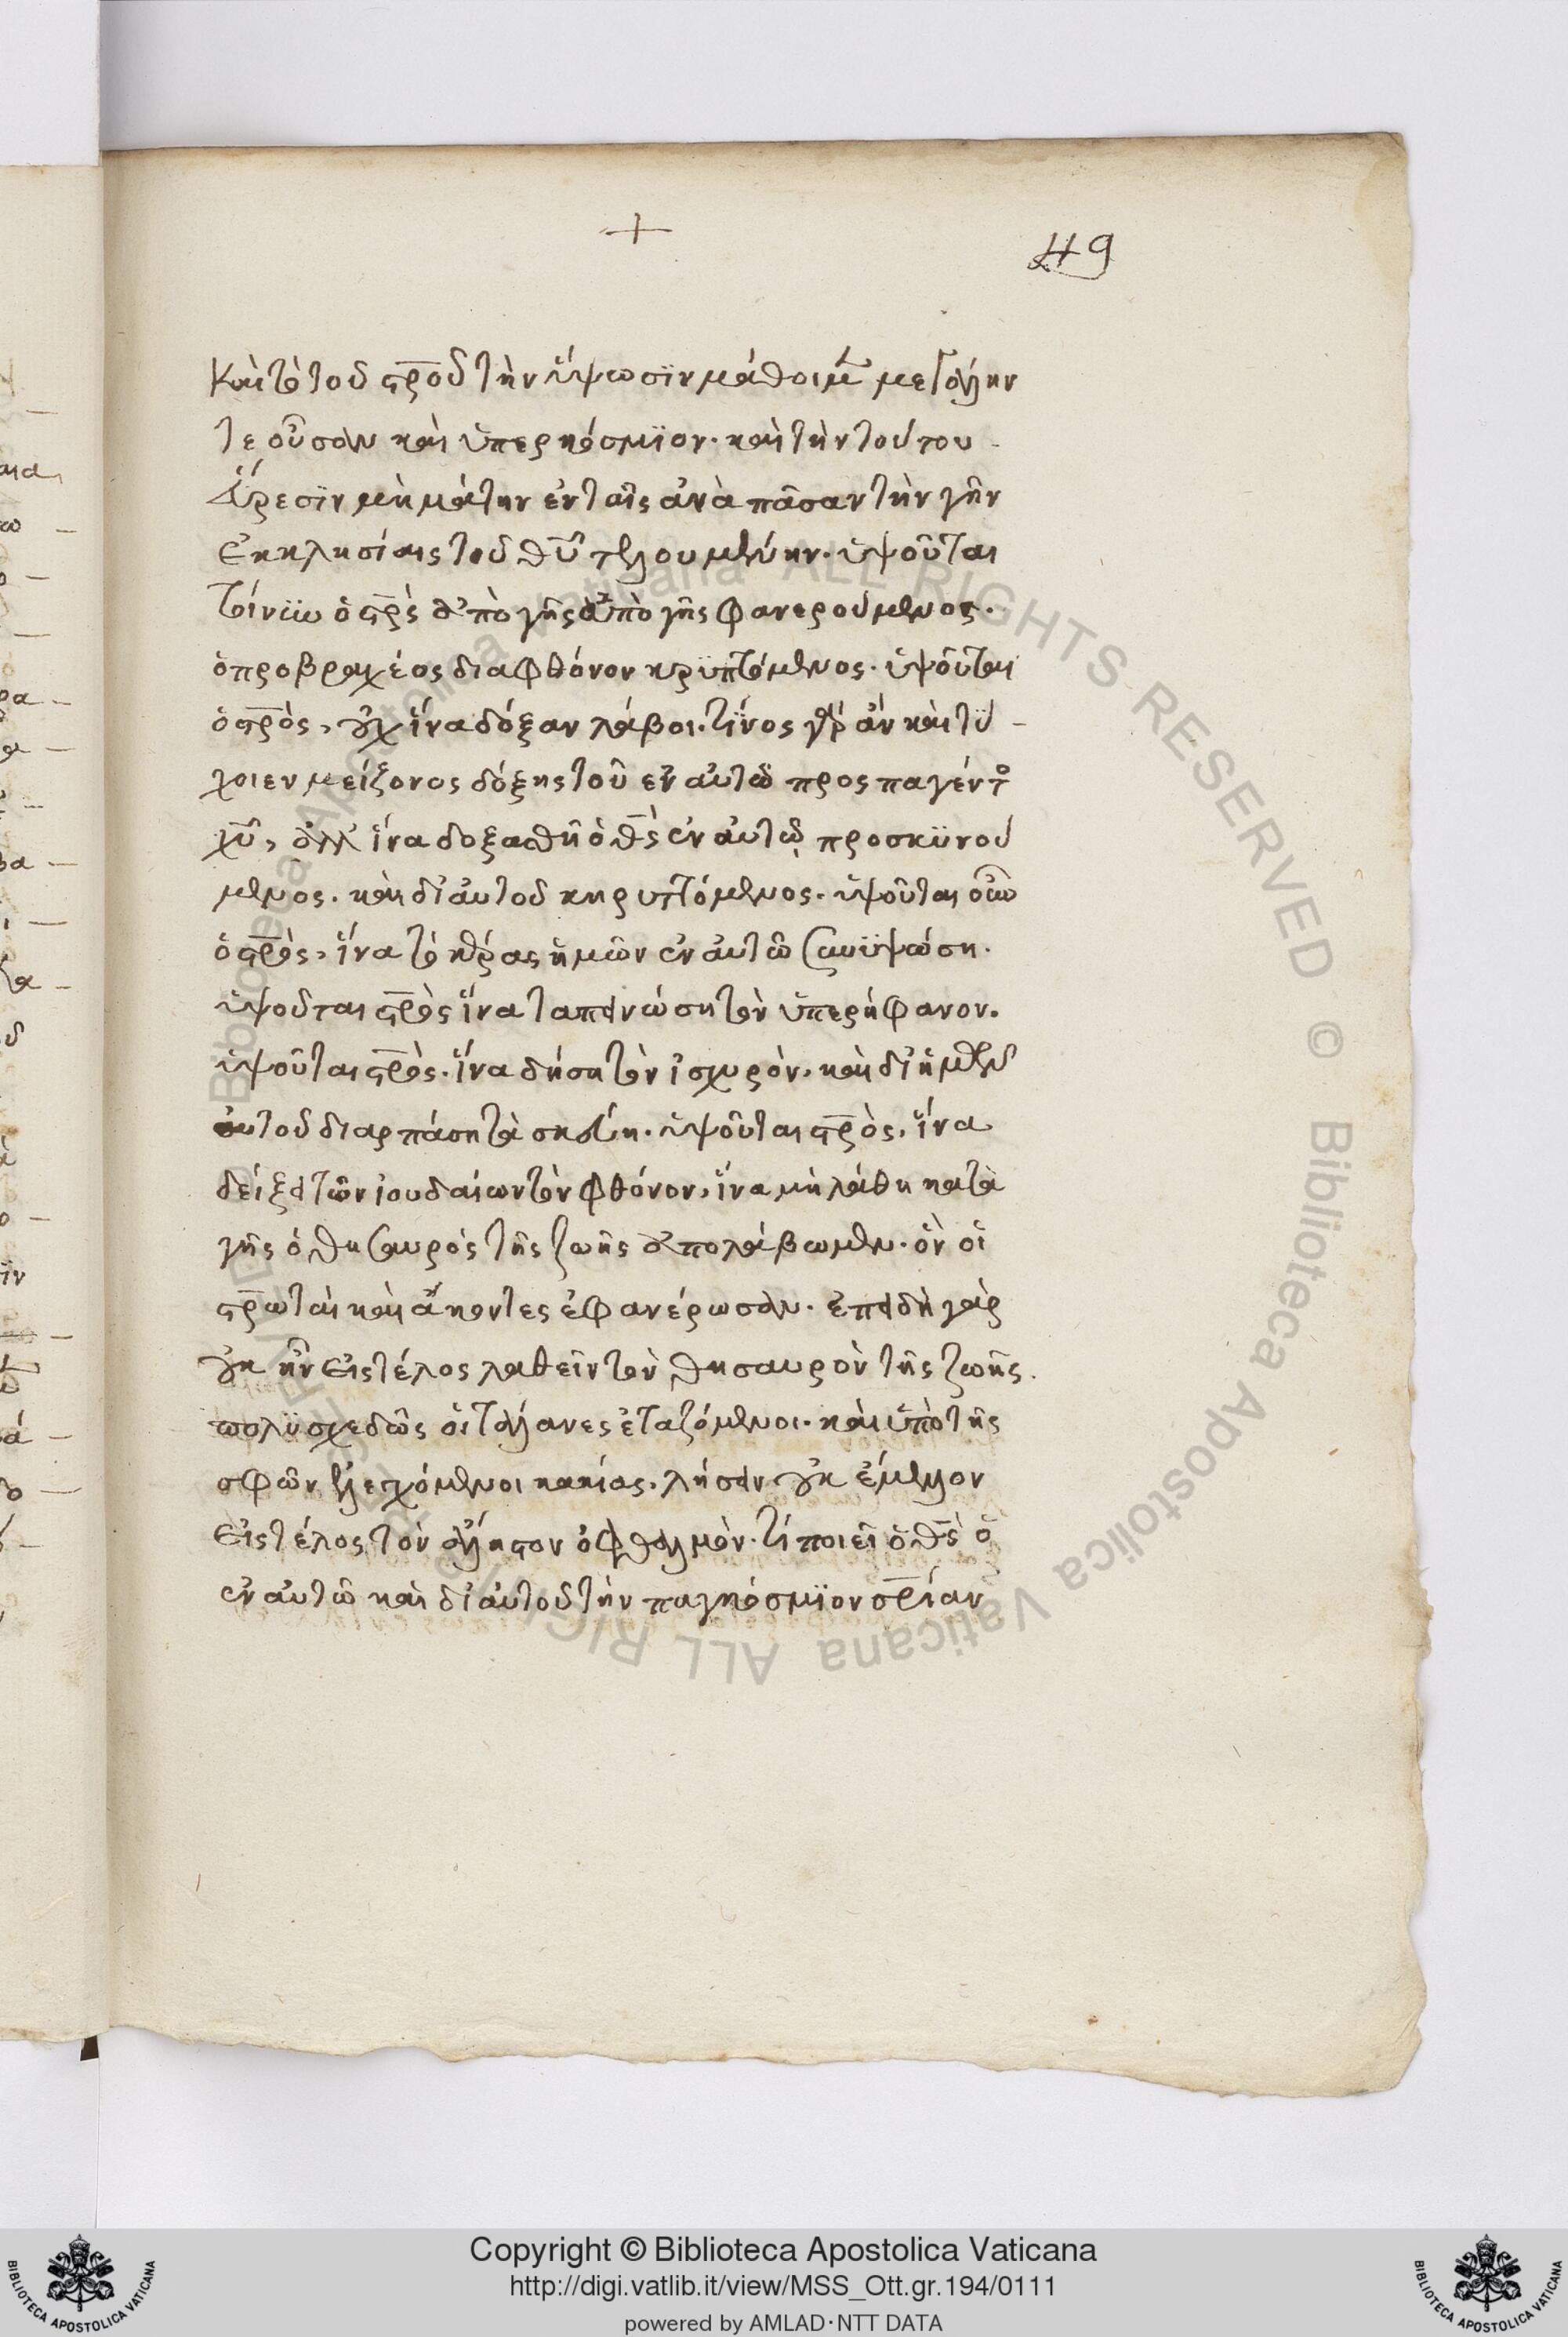 +
49
Καὶ τὸ τοῦ σ̅ρ̅οῦ τὴν ὕψωσϊν μάθοιμεν μεγάλην
τε οὖσαν καὶ ὑπερκόσμϊον· καὶ τὴν τούτου
εὕρεσϊν μὴ μάτην ἐν ταῖς ἀνὰ πᾶσαν τὴν γῆν
ἐκκλησίαις τοῦ θ̅υ̅ τελουμένην· ὑψοῦται
τοίνϋν ὁ σ̅ρ̅ὸς ἀπὸ γῆς ἀπὸ γῆς φανερούμενος·
ὁ προβραχέος διαφθόνον κρϋπτόμενος· ὑψοῦται
ὁ σ̅ρ̅ὸς, οὐχ ἵνα δόξαν λάβοι· τϊνος γὰρ ἂν καὶ τϋ
χοιεν μείζονος δόξης τοῦ ἐν αὐτῶ προς παγέντος
χ̅υ̅, ἀλλ' ἵνα δοξασθῆ ὁ θ̅ς̅ ἐν αὐτῶ προσκϋνού
μενος· καὶ δι' αὐτοῦ κηρυττόμενος· ὑψοῦται οὖν
ὁ σ̅ρ̅ὸς, ἵνα τὸ κέρας ἡμῶν ἐν αὐτῶ συνϋψώση·
ὑψοῦται σ̅ρ̅ὸς ἵνα ταπεινώση τὸν ὑπερήφανον·
ὑψοῦται σ̅ρ̅ὸς· ἵνα δήση τὸν ἰσχυρὸν, καὶ δι' ἡμῶν
αὐτοῦ διαρπάση τὰ σκεύη· ὑψοῦται σ̅ρ̅ὸς, ἵνα
δείξει τῶν ἰουδαίων τὸν φθόνον, ἵνα μὴ λάθη κατὰ
γῆς ὁ θησαυρός τῆς ζωῆς ἀπολάβωμεν· ὃν οἱ
σ̅ρ̅ωταὶ καὶ ἄκοντες ἐφανέρωσαν· ἐπειδὴ γὰρ
οὐκ ἦν εἰς τέλος λαθεῖν τὸν θησαυρὸν τῆς ζωῆς.
πολϋσχεδῶς οἱ τάλανες ἐταζόμενοι· καὶ ὑπὸ τῆς
σφῶν ἐλεγχόμενοι κακίας, λήσειν οὐκ ἔμελλον
εἰς τέλος τὸν ἄληστον ὀφθαλμὸν· τί ποιεῖ ὁ θ̅ς̅ ὁ
ἐν αὐτῶ καὶ δι' αὐτοῦ τὴν παγκόσμϊον σ̅ρ̅ίαν
Copyright © Biblioteca Apostolica Vaticana
http://digi.vatlib.it/view/MSS_Ott.gr.194/0111
powered by AMLAD·NTT DATA